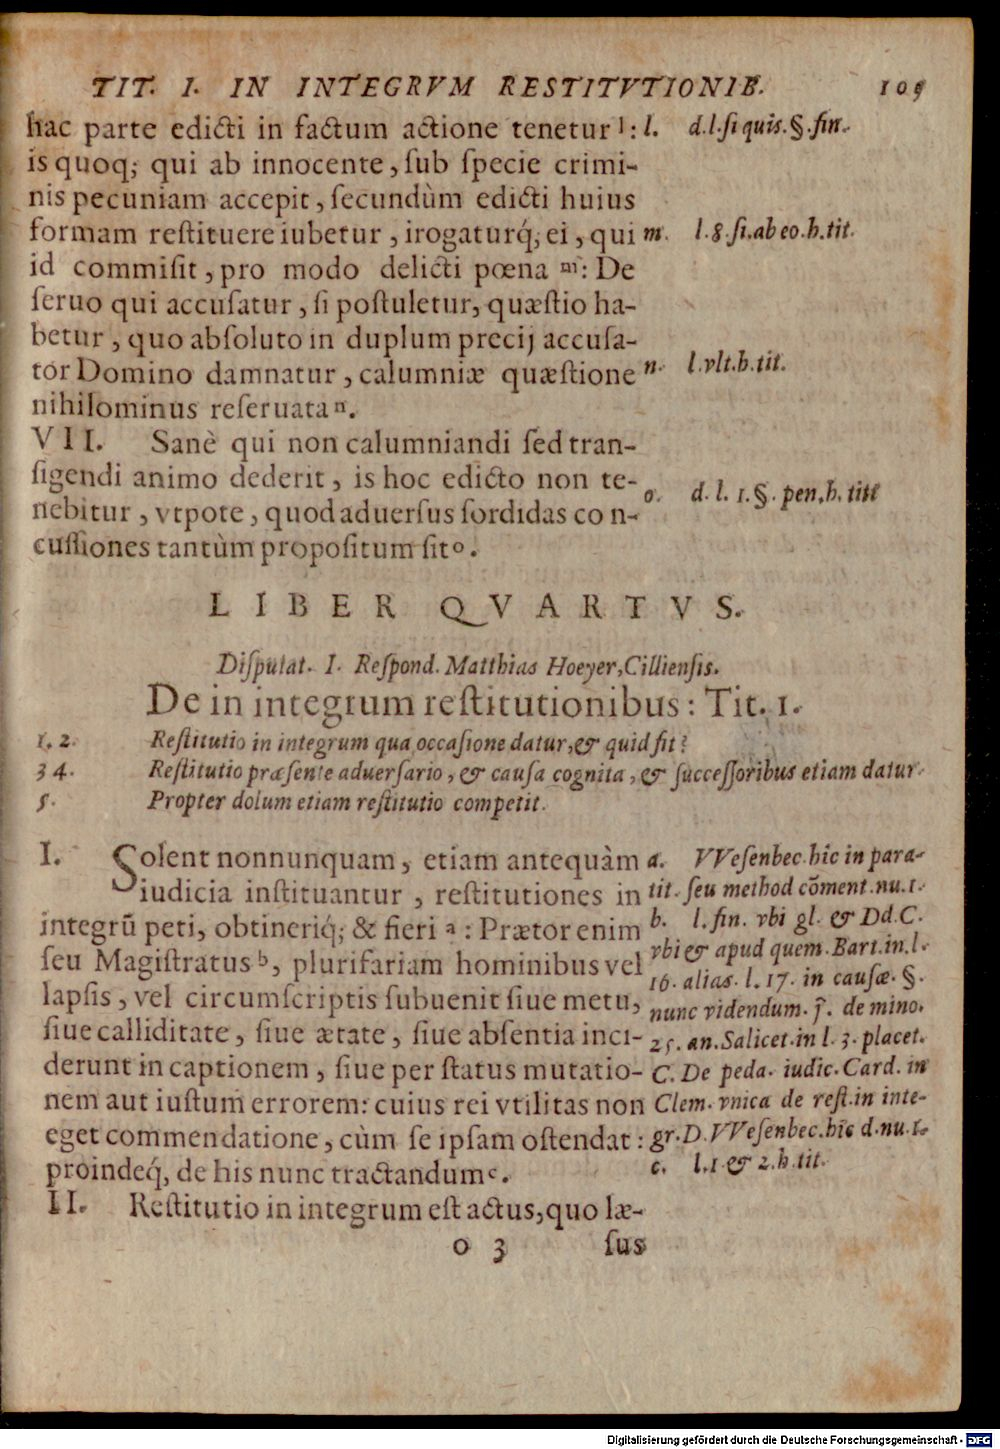 TIT. I. IN INTEGRVM RESTITVTIONIB. 109
hac parte edicti in factum actione tenetur l:
is quoq; qui ab innocente, ſub ſpecie crimi-
nis pecuniam accepit, ſecundùm edicti huius
formam reſtituere iubetur, irogaturq́; ei, qui
id commiſit, pro modo delicti pœna m: De
ſeruo qui accuſatur, ſi poſtuletur, quæſtio ha-
betur, quo abſoluto in duplum precij accuſa-
tor Domino damnatur, calumniæ quæſtione
nihilominus reſeruata n.
VII. Sanè qui non calumniandi ſed tran-
ſigendi animo dederit, is hoc edicto non te-
nebitur, vtpote, quod aduerſus ſordidas con-
cuſſiones tantùm propoſitum ſit o.
l. d.l.ſi quis.§.fin.
m. l.8.ſi.ab eo.h.tit.
n. l.vlt.h.tit.
o. d.l.1.§.pen.h.titt
LIBER QVARTVS.
Diſputat. I. Reſpond. Matthias Hoeyer, Cillienſis.
De in integrum reſtitutionibus: Tit. 1.
1. 2. Reſtitutio in integrum qua occaſione datur, & quid ſit?
3 4. Reſtitutio præſente aduerſario, & cauſa cognita, & ſucceſſoribus etiam datur.
5. Propter dolum etiam reſtitutio competit.
I. Solent nonnunquam, etiam antequàm
iudicia inſtituantur, reſtitutiones in
integrũ peti, obtineriq́; & fieri a: Prætor enim
ſeu Magiſtratus b, plurifariam hominibus vel
lapſis, vel circumſcriptis ſubuenit ſiue metu,
ſiue calliditate, ſiue ætate, ſiue abſentia inci-
derunt in captionem, ſiue per ſtatus mutatio-
nem aut iuſtum errorem: cuius rei vtilitas non
eget commendatione, cùm ſe ipſam oſtendat:
proindeq́, de his nunc tractandum c.
II. Reſtitutio in integrum eſt actus, quo læ-
a. VVeſenbec.hic in para-
tit. ſeu method cōment.nu.1.
b. l.fin. vbi gl. & Dd.C.
vbi & apud quem.Bart.in.l.
16. alias. l. 17. in cauſæ. §.
nunc videndum. ff. de mino.
25. an.Salicet.in l. 3. placet.
C. De peda. iudic.Card. in
Clem. vnica de reſt.in inte-
gr.D.VVeſenbec.hic d.nu.1.
c. l.1 & 2.h.tit.
o 3 ſus
Digitalisierung gefördert durch die Deutsche Forschungsgemeinschaft - DFG